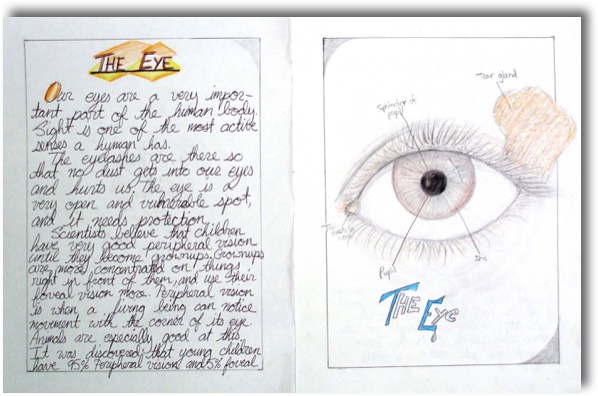 THE EYE
Our eyes are a very impor-
tant part of the human body.
Sight is one of the most active
senses a human has.
The eyelashes are there so
that no dust gets into our eyes
and hurts us. The eye is a
very open and vulnerable spot,
and it needs protection.
Scientists believe that children
have very good peripheral vision
until they become grownups. Grownups
are more concentrated on things
right in front of them, and use their
foveal vision more. Peripheral vision
is when a living being can notice
movement with the corner of its eye.
Animals are especially good at this.
It was discovered, that young children
have 95% Peripheral vision and 5% foveal.
Tear gland
Sphincter of
pupil
Pupil
Iris
THE EYE